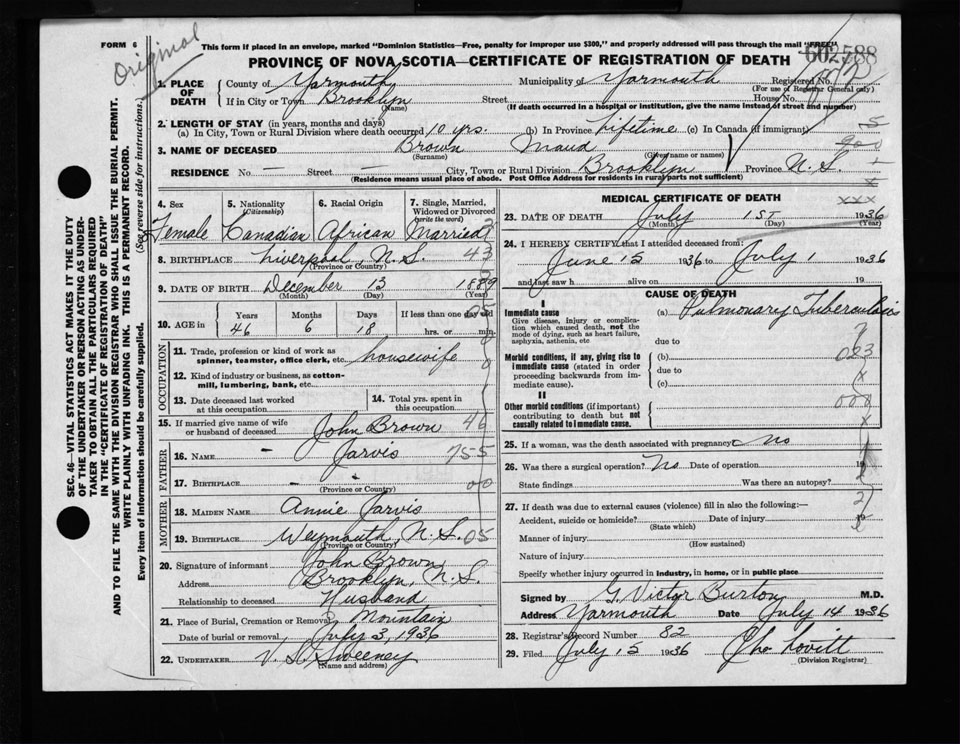 Original
FORM 6
This form if placed in an envelope, marked "Dominion Statistics—Free, penalty for improper use $300," and properly addressed will pass through the mail "FREE"
602588
PROVINCE OF NOVA SCOTIA—CERTIFICATE OF REGISTRATION OF DEATH
1. PLACE OF DEATH
County of Yarmouth Municipality of Yarmouth Registered No.
(For use of Registrar General only)
If in City or Town Brooklyn Street House No.
(Name) (If death occurred in a hospital or institution, give the name instead of street and number)
2. LENGTH OF STAY (in years, months and days)
(a) In City, Town or Rural Division where death occurred 10 yrs. (b) In Province Lifetime (c) In Canada (if immigrant)
3. NAME OF DECEASED Brown Maud
(Surname) (Given name or names)
RESIDENCE No. — Street — City, Town or Rural Division Brooklyn Province N. S.
(Residence means usual place of abode. Post Office Address for residents in rural parts not sufficient)
4. Sex Female
5. Nationality (Citizenship) Canadian
6. Racial Origin African
7. Single, Married, Widowed or Divorced (write the word) Married
8. BIRTHPLACE Liverpool, N.S. 43
(Province or Country)
9. DATE OF BIRTH December 13 1889
(Month) (Day) (Year)
10. AGE in Years Months Days If less than one day old
46 6 18 hrs. or min.
OCCUPATION
11. Trade, profession or kind of work as spinner, teamster, office clerk, etc. housewife
12. Kind of industry or business, as cotton-mill, lumbering, bank, etc.
13. Date deceased last worked at this occupation
14. Total yrs. spent in this occupation
15. If married give name of wife or husband of deceased John Brown 46
FATHER
16. NAME — Jarvis 755
17. BIRTHPLACE - - 00
(Province or Country)
MOTHER
18. MAIDEN NAME Annie Jarvis
19. BIRTHPLACE Weymouth, N.S. 05
(Province or Country)
20. Signature of informant John Brown
Address Brooklyn, N.S.
Relationship to deceased Husband
21. Place of Burial, Cremation or Removal Mountain
Date of burial or removal July 3, 1936
22. UNDERTAKER V. S. Sweeney
(Name and address)
MEDICAL CERTIFICATE OF DEATH
23. DATE OF DEATH July 1ST 1936
(Month) (Day) (Year)
24. I HEREBY CERTIFY that I attended deceased from:
June 15 1936 to July 1 1936
and last saw h alive on 19
CAUSE OF DEATH
I
Immediate cause (a) Pulmonary Tuberculosis
Give disease, injury or complication which caused death, not the mode of dying, such as heart failure, asphyxia, asthenia, etc
due to
Morbid conditions, if any, giving rise to immediate cause (stated in order proceeding backwards from immediate cause).
(b)
due to
(c)
II
Other morbid conditions (if important) contributing to death but not causally related to immediate cause.
25. If a woman, was the death associated with pregnancy? no
26. Was there a surgical operation? No Date of operation 19
State findings Was there an autopsy?
27. If death was due to external causes (violence) fill in also the following:—
Accident, suicide or homicide? Date of injury 19
(State which)
Manner of injury
(How sustained)
Nature of injury
Specify whether injury occurred in industry, in home, or in public place
Signed by G. Victor Burton M.D.
Address Yarmouth Date July 14 1936
28. Registrar's Record Number 82
29. Filed July 15 1936 Chas Lovitt
(Division Registrar)
SEC. 46—VITAL STATISTICS ACT MAKES IT THE DUTY
OF THE UNDERTAKER OR PERSON ACTING AS UNDER-
TAKER TO OBTAIN ALL THE PARTICULARS REQUIRED
IN THE "CERTIFICATE OF REGISTRATION OF DEATH"
AND TO FILE THE SAME WITH THE DIVISION REGISTRAR WHO SHALL ISSUE THE BURIAL PERMIT.
WRITE PLAINLY WITH UNFADING INK. THIS IS A PERMANENT RECORD.
Every item of information should be carefully supplied. (See reverse side for instructions.)